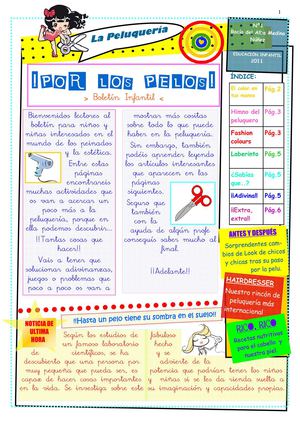 1
La Peluquería
Nº:1
Rocío del Alba Medina
Núñez
EDUCACIÓN INFANTIL
2011
¡POR LOS PELOS!
> Boletín Infantil <
Bienvenidos lectores al
boletín para niños y
niñas interesados en el
mundo de los peinados
y la estética.
Entre estas
páginas
encontrareis
muchas actividades que
os van a acercar un
poco más a la
peluquería, porque en
ella podemos descubrir...
!!Tantas cosas que
hacer!!
Vais a tener que
solucionar adivinanzas,
juegos o problemas que
poco a poco os van a
mostrar más cositas
sobre todo lo que puede
haber en la peluquería.
Sin embargo, también
podéis aprender leyendo
los artículos interesantes
que aparecen en las
páginas
siguientes.
Seguro que
también
con la
ayuda de algún profe
conseguís saber mucho al
final.
!!Adelante!!
ÍNDICE:
El color en
tus manos
Pág.2
Himno del
peluquero
Pág.3
Fashion
colours
Pág.3
Laberinto
Pág.5
¿Sabías
que..?
Pág.5
!!Adivina!!
Pág.5
!!Extra,
extra!!
Pág.6
ANTES Y DESPUÉS
Sorprendentes cam-
bios de Look de chicos
y chicas tras su paso
por la pelu.
HAIRDRESSER
Nuestro rincón de
peluquería más
internacional
RICO, RICO
Recetas nutritivas
para el cabello y
nuestra piel
NOTICIA DE
ULTIMA
HORA
!!Hasta un pelo tiene su sombra en el suelo!!
Según los estudios de
un famoso laboratorio
científico, se ha
descubierto que una persona por
muy pequeña que pueda ser, es
capaz de hacer cosas importantes
en la vida. Se investiga sobre este
fabuloso
hecho
y se
advierte de la
potencia que podrían tener los niños
y niñas si se les da rienda suelta a
su imaginación y capacidades propias.